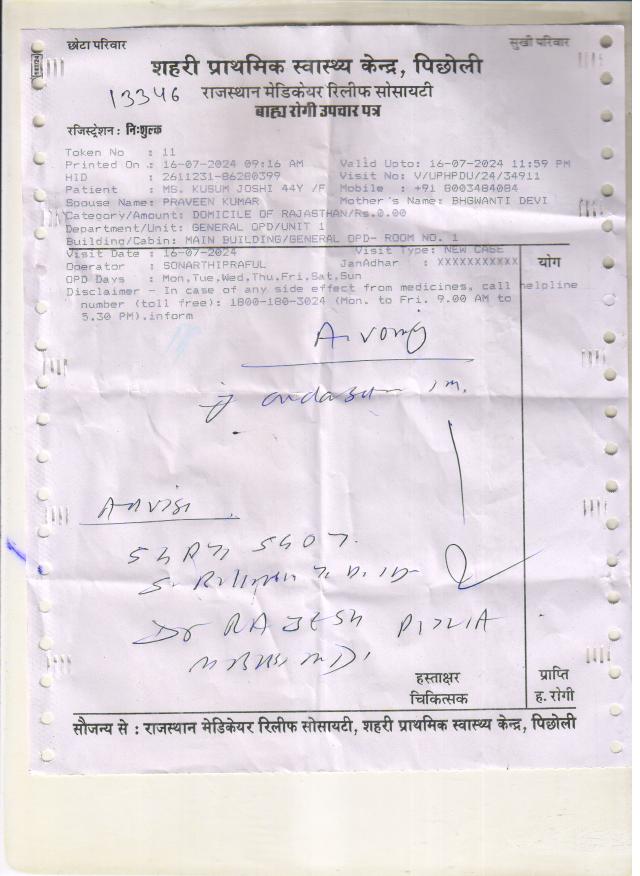 छोटा परिवार सुखी परिवार
शहरी प्राथमिक स्वास्थ्य केन्द्र, पिछोली
13346 राजस्थान मेडिकेयर रिलीफ सोसायटी
बाह्य रोगी उपचार पत्र
रजिस्ट्रेशन : निःशुल्क
Token No : 11
Printed On : 16-07-2024 09:16 AM Valid Upto: 16-07-2024 11:59 PM
HID : 2611231-86280399 Visit No: V/UPHPDU/24/34911
Patient : MS. KUSUM JOSHI 44Y /F Mobile : +91 8003484084
Spouse Name: PRAVEEN KUMAR Mother's Name: BHGWANTI DEVI
Category/Amount: DOMICILE OF RAJASTHAN/Rs.0.00
Department/Unit: GENERAL OPD/UNIT 1
Building/Cabin: MAIN BUILDING/GENERAL OPD- ROOM NO. 1
Visit Date : 16-07-2024 Visit Type: NEW CASE
Operator : SONARTHIPRAFUL JanAdhar : XXXXXXXXXXX योग
OPD Days : Mon,Tue,Wed,Thu,Fri,Sat,Sun
Disclaimer - In case of any side effect from medicines, call helpline
number (toll free): 1800-180-3024 (Mon. to Fri. 9.00 AM to
5.30 PM).inform
Dr RAJESH
हस्ताक्षर प्राप्ति
चिकित्सक ह. रोगी
सौजन्य से : राजस्थान मेडिकेयर रिलीफ सोसायटी, शहरी प्राथमिक स्वास्थ्य केन्द्र, पिछोली